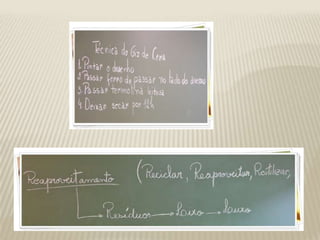 Técnica do Giz de Cera
1. Pintar o desenho
2. Passar ferro de passar no lado do desenho
3. Passar termolina leitosa
4. Deixar secar por 12h
Reaproveitamento (Reciclar, Reaproveitar, Reutilizar,
Resíduos → Lixo → Luxo